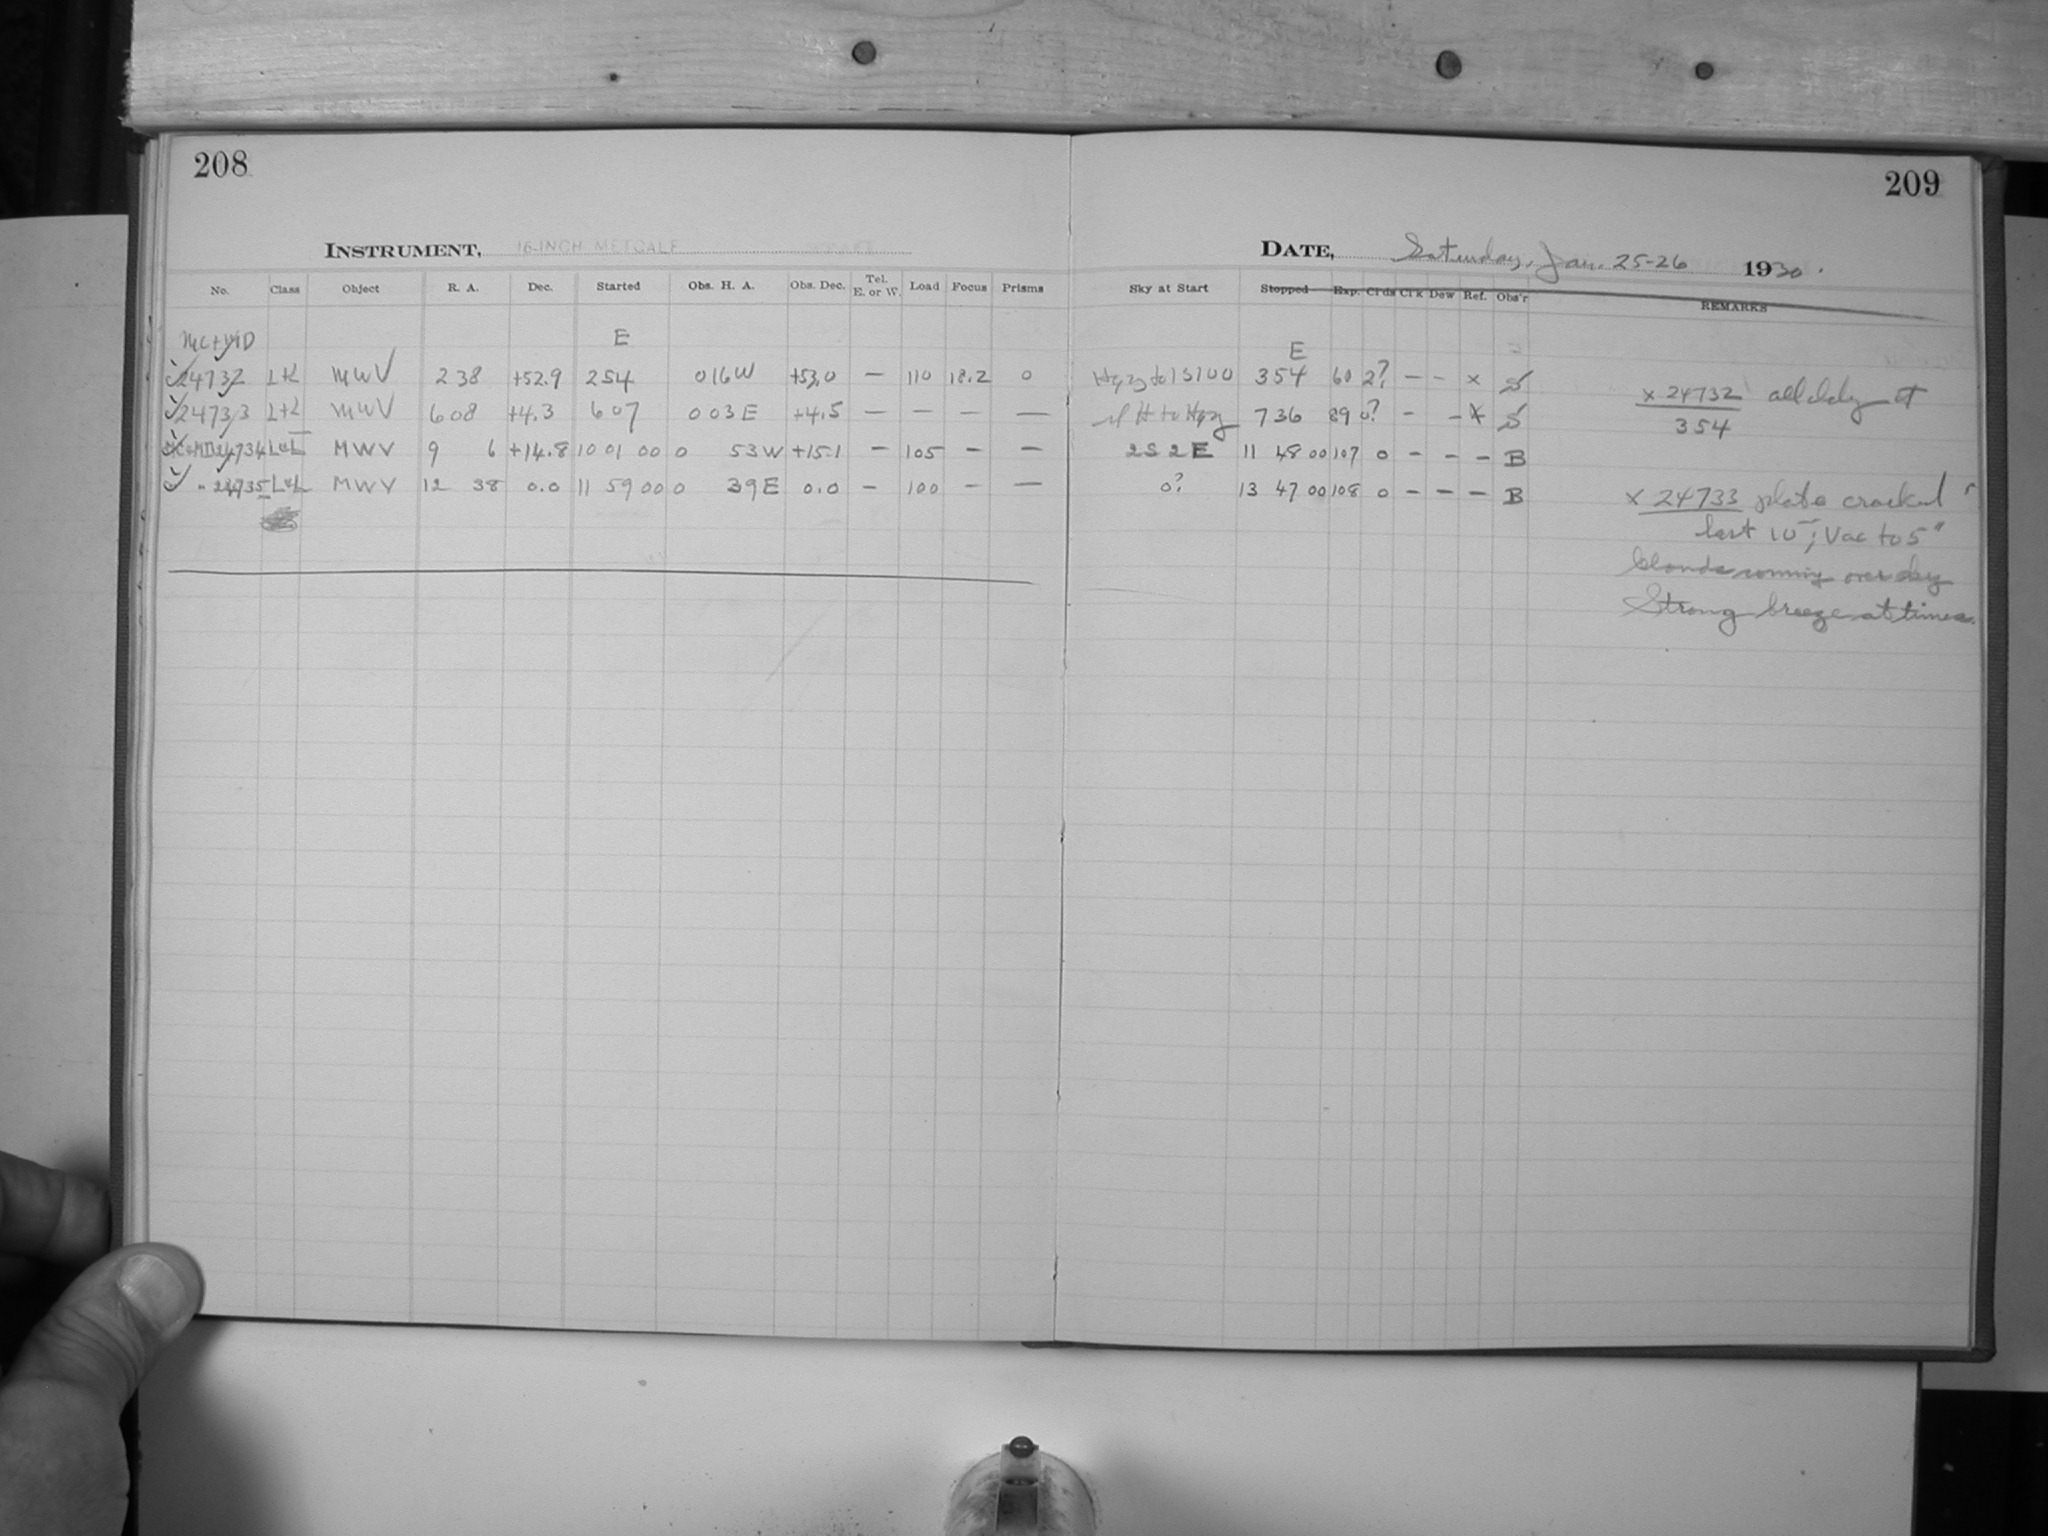 208
209
INSTRUMENT, 16-INCH METCALF
DATE, Saturday, Jan. 25-26 1930.
No. Class Object R. A. Dec. Started Obs. H. A. Obs. Dec. Tel. E. or W. Load Focus Prisms Sky at Start Stopped Exp. Cl'ds Cl'k Dew Ref. Obs'r REMARKS
MC+MD E E
24732 L+L MWV 2 38 +52.9 2 54 0 16W +53.0 — 110 18.2 0 3 54 60 2? — - x S
24733 L+L MWV 6 08 +4.3 6 07 0 03E +4.5 — — — — 7 36 89 0? - - x S
MC+MD 24734 L+L MWV 9 6 +14.8 10 01 00 0 53W +15.1 — 105 — — 2S 2E 11 48 00 107 0 - - - B
" 24735 L+L MWV 12 38 0.0 11 59 00 0 39E 0.0 - 100 - — 0? 13 47 00 108 0 - - - B
x 24732 all cldy at
354
x 24733 plate cracked
last 10; Vac to 5"
Clouds running over sky
Strong breeze at times.